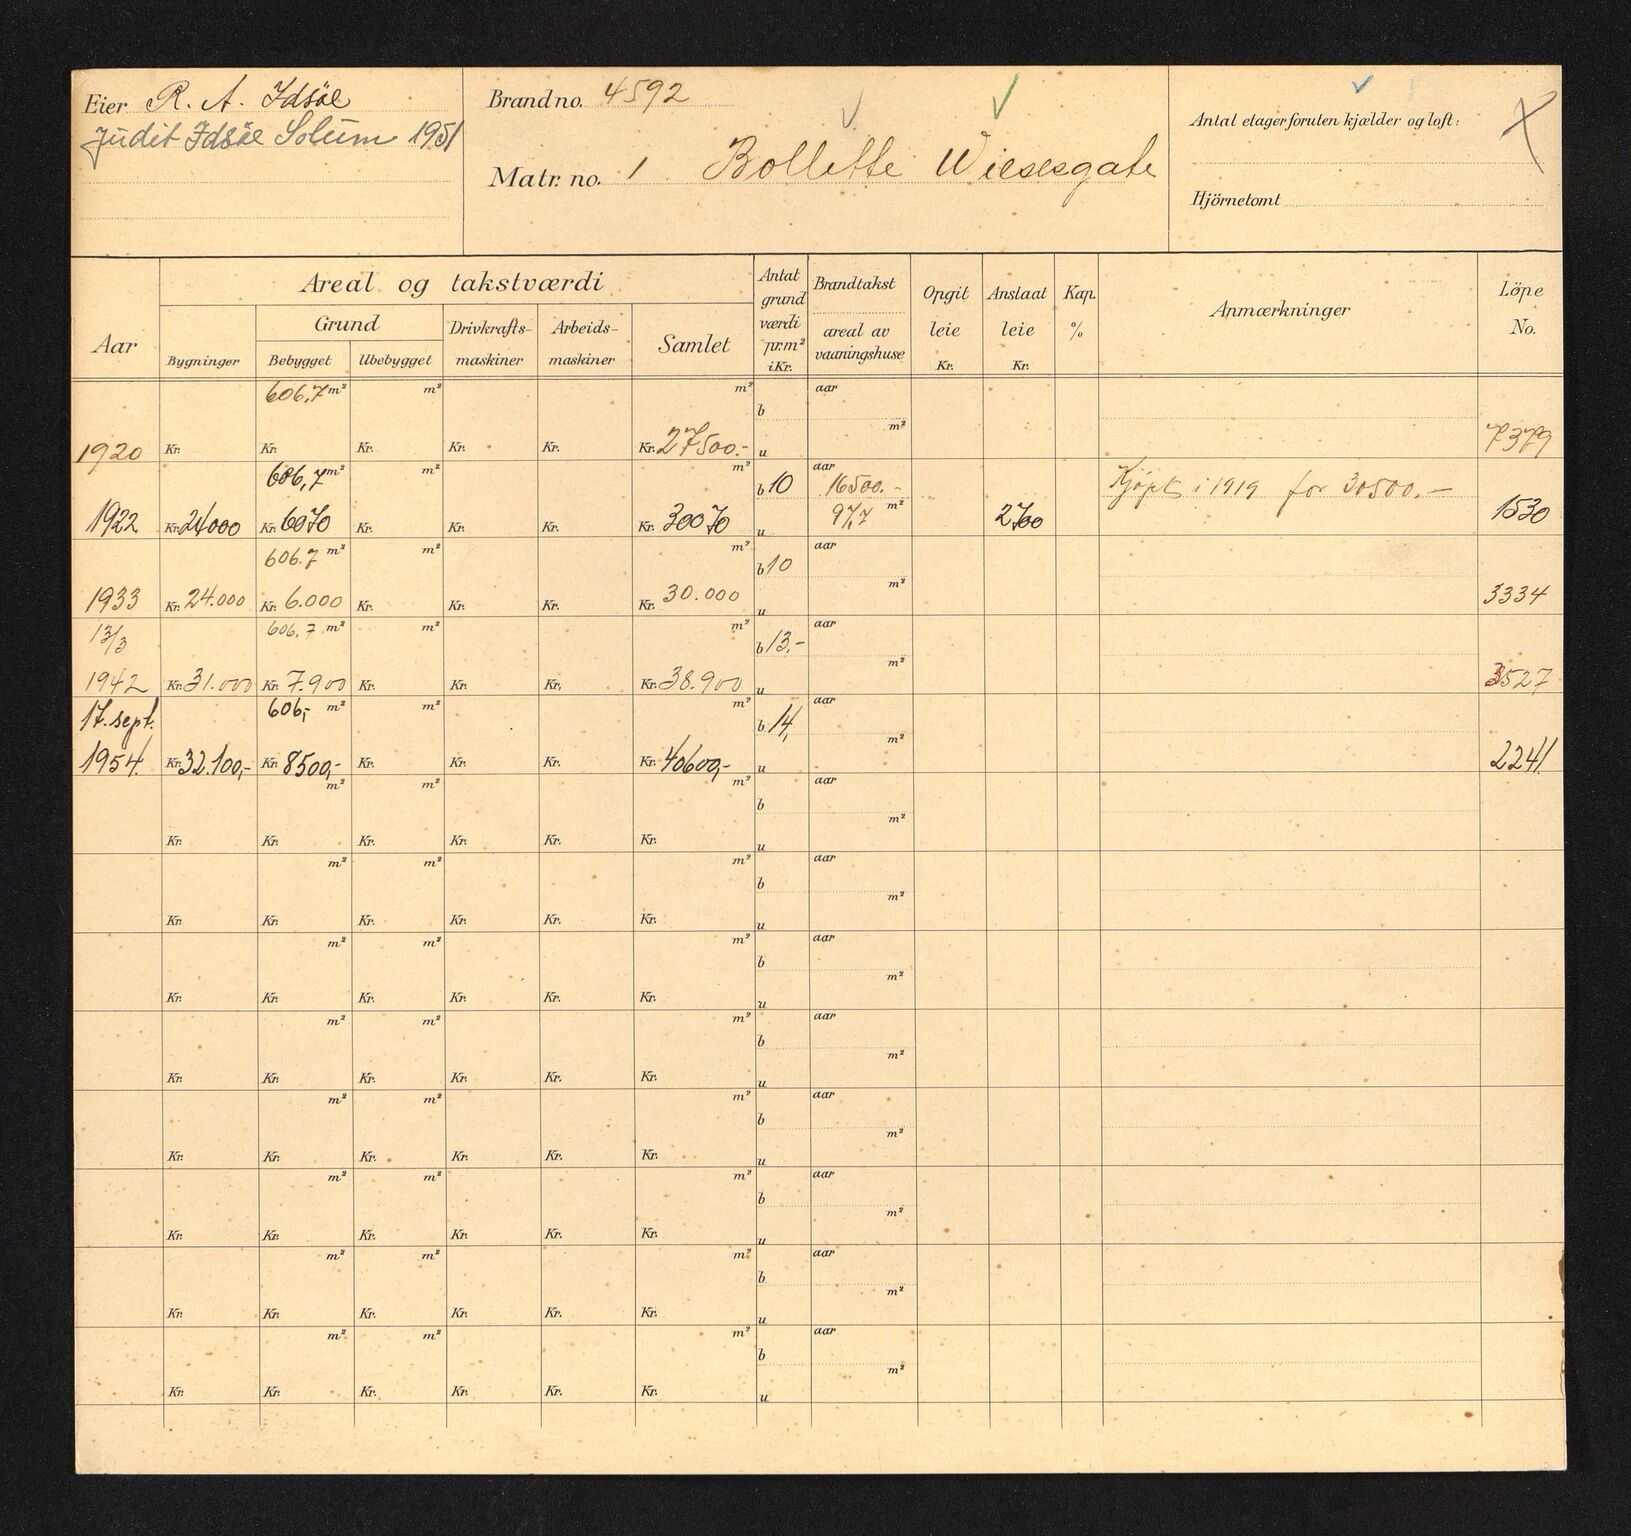 Eier R. A. Idsöe
Judit Idsöe Solum 1951
Brandno. 4592
Matr. no. 1 Bollette Wiesesgate
Antal etager foruten kjælder og loft:
Hjörnetomt
Aar
Areal og takstværdi
Bygninger
Grund
Bebygget Ubebygget
Drivkrafts-
maskiner
Arbeids-
maskiner
Samlet
Antat
grund
værdi
pr.m²
i Kr.
Brandtakst
areal av
vaaningshuse
Opgit
leie
Kr.
Anslaat
leie
Kr.
Kap.
%
Anmærkninger
Löpe
No.
606,7 m² m² m² aar
b
m²
1920 Kr. Kr. Kr. Kr. Kr. Kr. 27500.- u 7379
606,7 m² m² m² aar
b 10 16500.- Kjöpt i 1919 for 30500.-
97,7 m²
1922 Kr. 24000 Kr. 6070 Kr. Kr. Kr. Kr. 30070 u 2700 1530
606.7 m² m² m² aar
b 10
m²
1933 Kr. 24.000 Kr. 6.000 Kr. Kr. Kr. Kr. 30.000 u 3334
13/3 606,7 m² m² m² aar
b 13,-
m²
1942 Kr. 31.000 Kr. 7.900 Kr. Kr. Kr. Kr. 38.900 u 3527
17. sept. 606,- m² m² m² aar
b 14,
m²
1954. Kr. 32.100,- Kr. 8500,- Kr. Kr. Kr. Kr. 40600,- u 2241
m² m² m² aar
b
m²
Kr. Kr. Kr. Kr. Kr. Kr. u
m² m² m² aar
b
m²
Kr. Kr. Kr. Kr. Kr. Kr. u
m² m² m² aar
b
m²
Kr. Kr. Kr. Kr. Kr. Kr. u
m² m² m² aar
b
m²
Kr. Kr. Kr. Kr. Kr. Kr. u
m² m² m² aar
b
m²
Kr. Kr. Kr. Kr. Kr. Kr. u
m² m² m² aar
b
m²
Kr. Kr. Kr. Kr. Kr. Kr. u
m² m² m² aar
b
m²
Kr. Kr. Kr. Kr. Kr. Kr. u
m² m² m² aar
b
m²
Kr. Kr. Kr. Kr. Kr. Kr. u